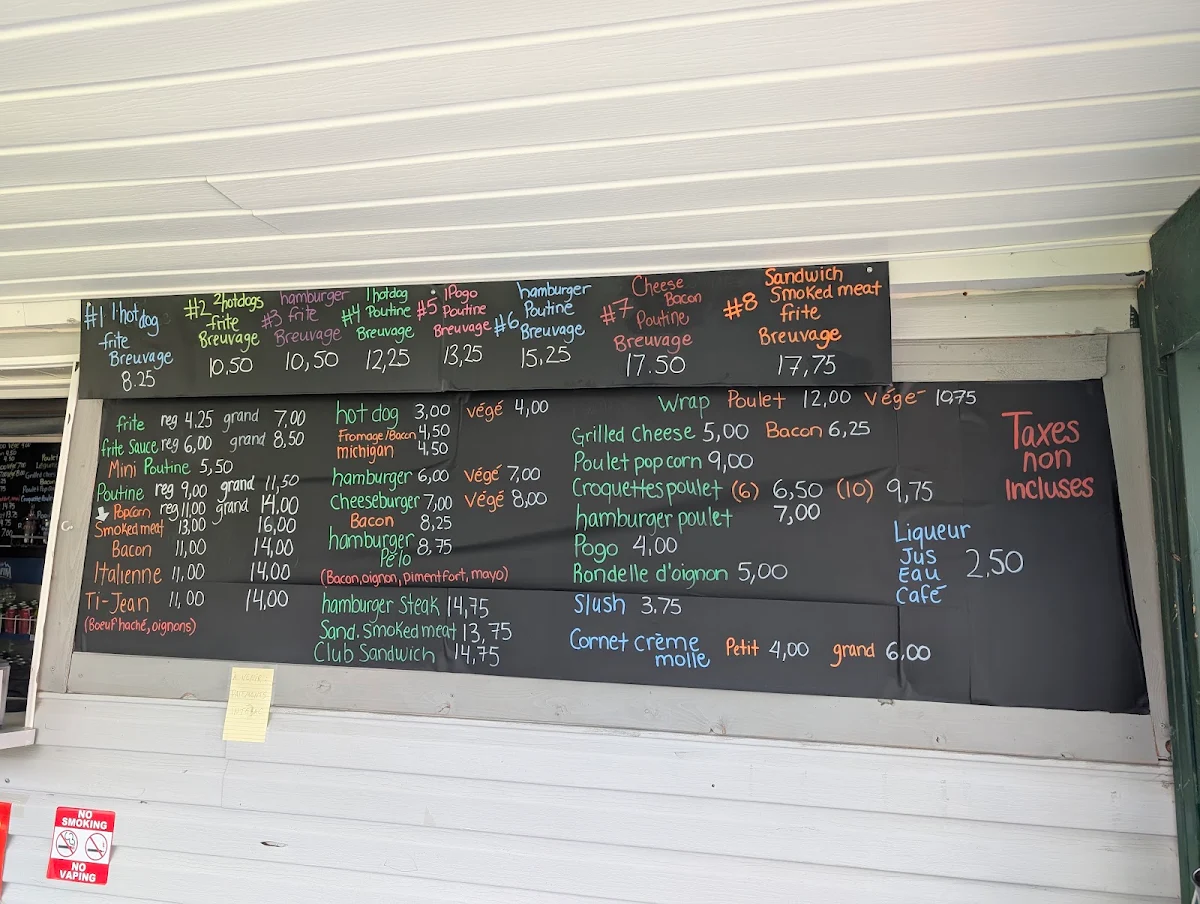 #1 1 hot dog
frite
Breuvage
8.25
#2 2 hotdogs
frite
Breuvage
10,50
hamburger
#3 frite
Breuvage
10,50
1 hotdog
#4 Poutine
Breuvage
12,25
#5 1 Pogo
Poutine
Breuvage
13,25
hamburger
Poutine
#6 Breuvage
15,25
Cheese
#7 Bacon
Poutine
Breuvage
17.50
Sandwich
#8 Smoked meat
frite
Breuvage
17,75
frite reg 4.25 grand 7,00
frite Sauce reg 6,00 grand 8,50
Mini Poutine 5,50
Poutine reg 9,00 grand 11,50
Popcorn reg 11,00 grand 14,00
Smoked meat 13,00 16,00
Bacon 11,00 14,00
Italienne 11,00 14,00
Ti-Jean 11,00 14,00
(Boeuf haché, oignons)
hot dog 3,00 végé 4,00
Fromage/Bacon 4,50
michigan 4,50
hamburger 6,00 végé 7,00
Cheeseburger 7,00 Végé 8,00
Bacon 8,25
hamburger 8,75
Pélo
(Bacon, oignon, piment fort, mayo)
hamburger Steak 14,75
Sand. Smoked meat 13,75
Club Sandwich 14,75
Wrap Poulet 12,00 végé- 10,75
Grilled Cheese 5,00 Bacon 6,25
Poulet pop corn 9,00
Croquettes poulet (6) 6,50 (10) 9,75
hamburger poulet 7,00
Pogo 4,00
Rondelle d'oignon 5,00
Slush 3.75
Cornet crème
molle Petit 4,00 grand 6,00
Taxes
non
Incluses
Liqueur
Jus
Eau 2,50
Café
NO
SMOKING
NO
VAPING